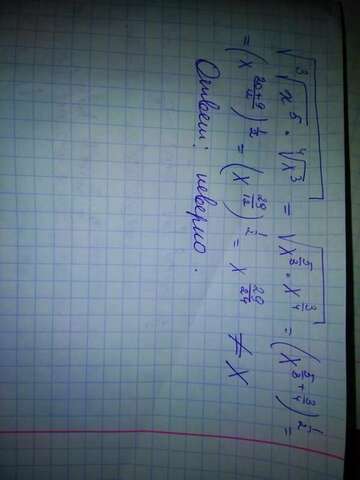 √(∛x⁵ · ∜x³) = √(x^(5/3) · x^(3/4)) = (x^(5/3 + 3/4))^(1/2) =
= (x^((20+9)/12))^(1/2) = (x^(29/12))^(1/2) = x^(29/24) ≠ x
Ответ: неверно.